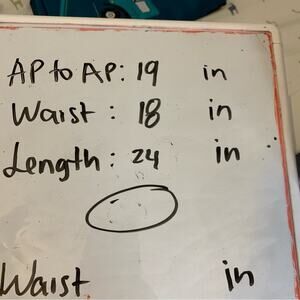 AP to AP: 19 in
Waist : 18 in
Length : 24 in
Waist in